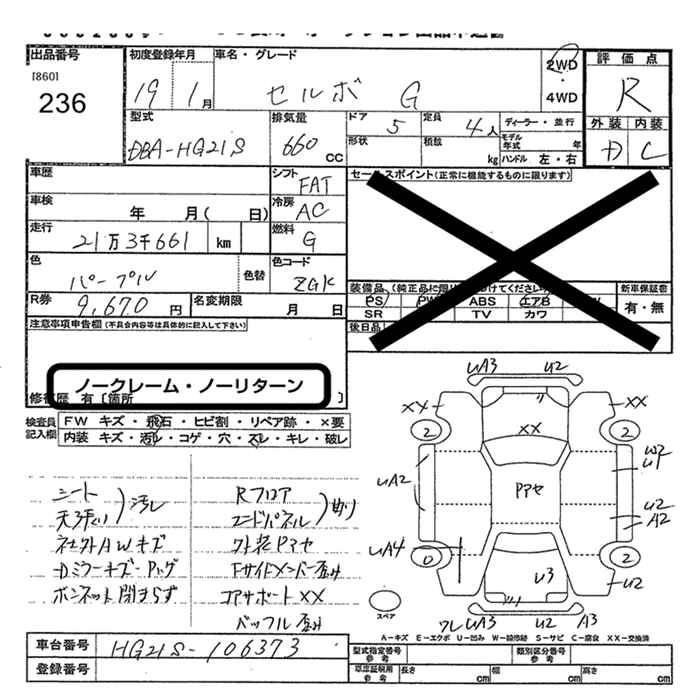 出品番号
[860]
236
初度登録年月
19 1月
車名・グレード
セルボ G
2WD
・
4WD
評価点
R
型式
DBA-HG21S
排気量
660 CC
ドア 5
定員 4人
形状
積数 kg
ディーラー・並行
モデル年式 年
ハンドル 左・右
外装 内装
D C
車歴
シフト FAT
セールスポイント(正常に機能するものに限ります)
車検 年 月( 日)
冷房 AC
走行 21万3千661 km
燃料 G
色 パープル 色替
色コード ZGK
装備品
PS ABS エアB
SR TV カワ
新車保証書
有・無
R券 9,670円
名変期限 月 日
後日品
注意事項申告欄(不具合内容等は具体的に記入して下さい)
ノークレーム・ノーリターン
修復歴 有〔箇所 〕
検査員記入欄
FW キズ・飛石・ヒビ割・リペア跡・×要
内装 キズ・汚れ・コゲ・穴・スレ・キレ・破レ
シート
天張り 汚れ
社外AWキズ
Dミラーキズ
ボンネット開まらず
Rフロア
エンドパネル 曲り
外装Pアセ
Fサイドメンバー歪み
コアサポートXX
バッフル歪み
UA3 U2
XX XX
2 2
XX
W2
U1
UA2
Pアセ
U2
A2
UA4
0 2
U3
U2
スペア
ワレ UA3 U2 A3
A-キズ E-エクボ U-凹み W-補修跡 S-サビ C-腐食 XX-交換済
車台番号 HG21S-106373
登録番号
型式指定番号 参考
類別区分番号 参考
車庫証明用 参考 長さ cm 幅 cm 高さ cm